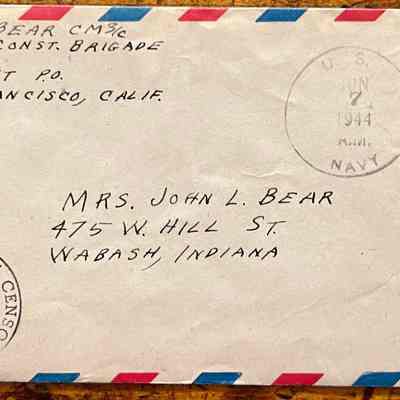 BEAR CM3/c
CONST. BRIGADE
T P.O.
ANCISCO, CALIF.
U. S.
JUN
7
1944
A.M.
NAVY
MRS. JOHN L. BEAR
475 W. HILL ST.
WABASH, INDIANA
CENSO